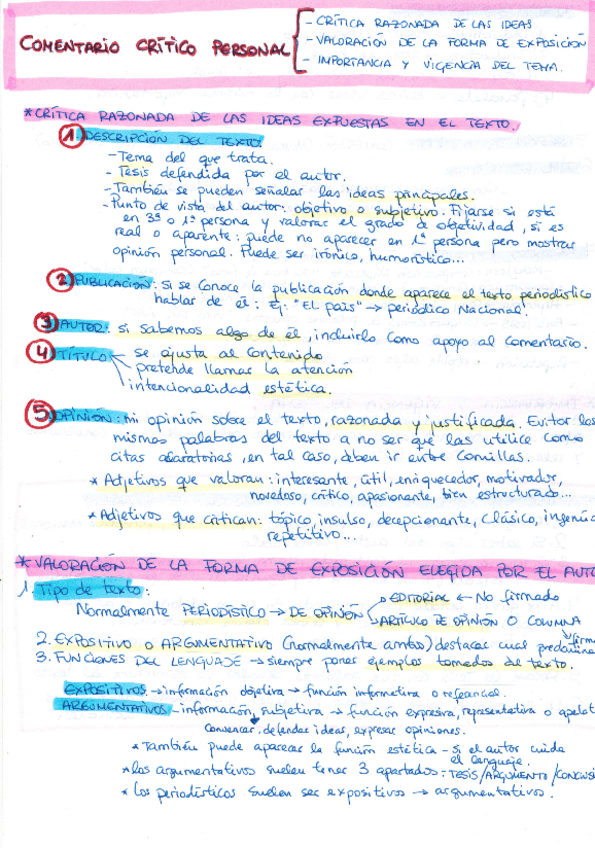 COMENTARIO CRÍTICO PERSONAL
- CRÍTICA RAZONADA DE LAS IDEAS
- VALORACIÓN DE LA FORMA DE EXPOSICIÓN
- IMPORTANCIA Y VIGENCIA DEL TEMA.
* CRÍTICA RAZONADA DE LAS IDEAS EXPUESTAS EN EL TEXTO.
1. DESCRIPCIÓN DEL TEXTO
- Tema del que trata.
- Tesis defendida por el autor.
- También se pueden señalar las ideas principales.
- Punto de vista del autor: objetivo o subjetivo. Fijarse si está
en 3ª o 1ª persona y valorar el grado de objetividad, si es
real o aparente: puede no aparecer en 1ª persona pero mostrar
opinión personal. Puede ser irónico, humorístico...
2 PUBLICACIÓN: si se conoce la publicación donde aparece el texto periodístico
hablar de él: Ej: "EL país" → periódico Nacional.
3 AUTOR: si sabemos algo de él, incluirlo como apoyo al comentario.
4 TÍTULO
se ajusta al contenido
pretende llamar la atención
intencionalidad estética.
5 OPINIÓN: mi opinión sobre el texto, razonada y justificada. Evitar los
mismas palabras del texto a no ser que las utilice como
citas aclaratorias, en tal caso, deben ir entre comillas.
* Adjetivos que valoran: interesante, útil, enriquecedor, motivador,
novedoso, crítico, apasionante, bien estructurado...
* Adjetivos que critican: tópico, insulso, decepcionante, clásico,
repetitivo...
* VALORACIÓN DE LA FORMA DE EXPOSICIÓN ELEGIDA POR EL AUTO
1. Tipo de texto:
Normalmente PERIODÍSTICO → DE OPINIÓN
EDITORIAL ← No firmado
ARTÍCULO DE OPINIÓN O COLUMNA
2. EXPOSITIVO O ARGUMENTATIVO (normalmente ambos) destacar cual
3. FUNCIONES DEL LENGUAJE → siempre poner ejemplos tomados de texto.
EXPOSITIVOS → información objetiva → función informativa o referencial.
ARGUMENTATIVOS - información subjetiva → función expresiva, representativa o apelat
Convencer, defender ideas, expresar opiniones.
* También puede aparecer la función estética - si el autor cuida
el lenguaje.
* los argumentativos suelen tener 3 apartados: TESIS/ARGUMENTO/CONCLUSI
* Los periodísticos suelen ser expositivos → argumentativos.